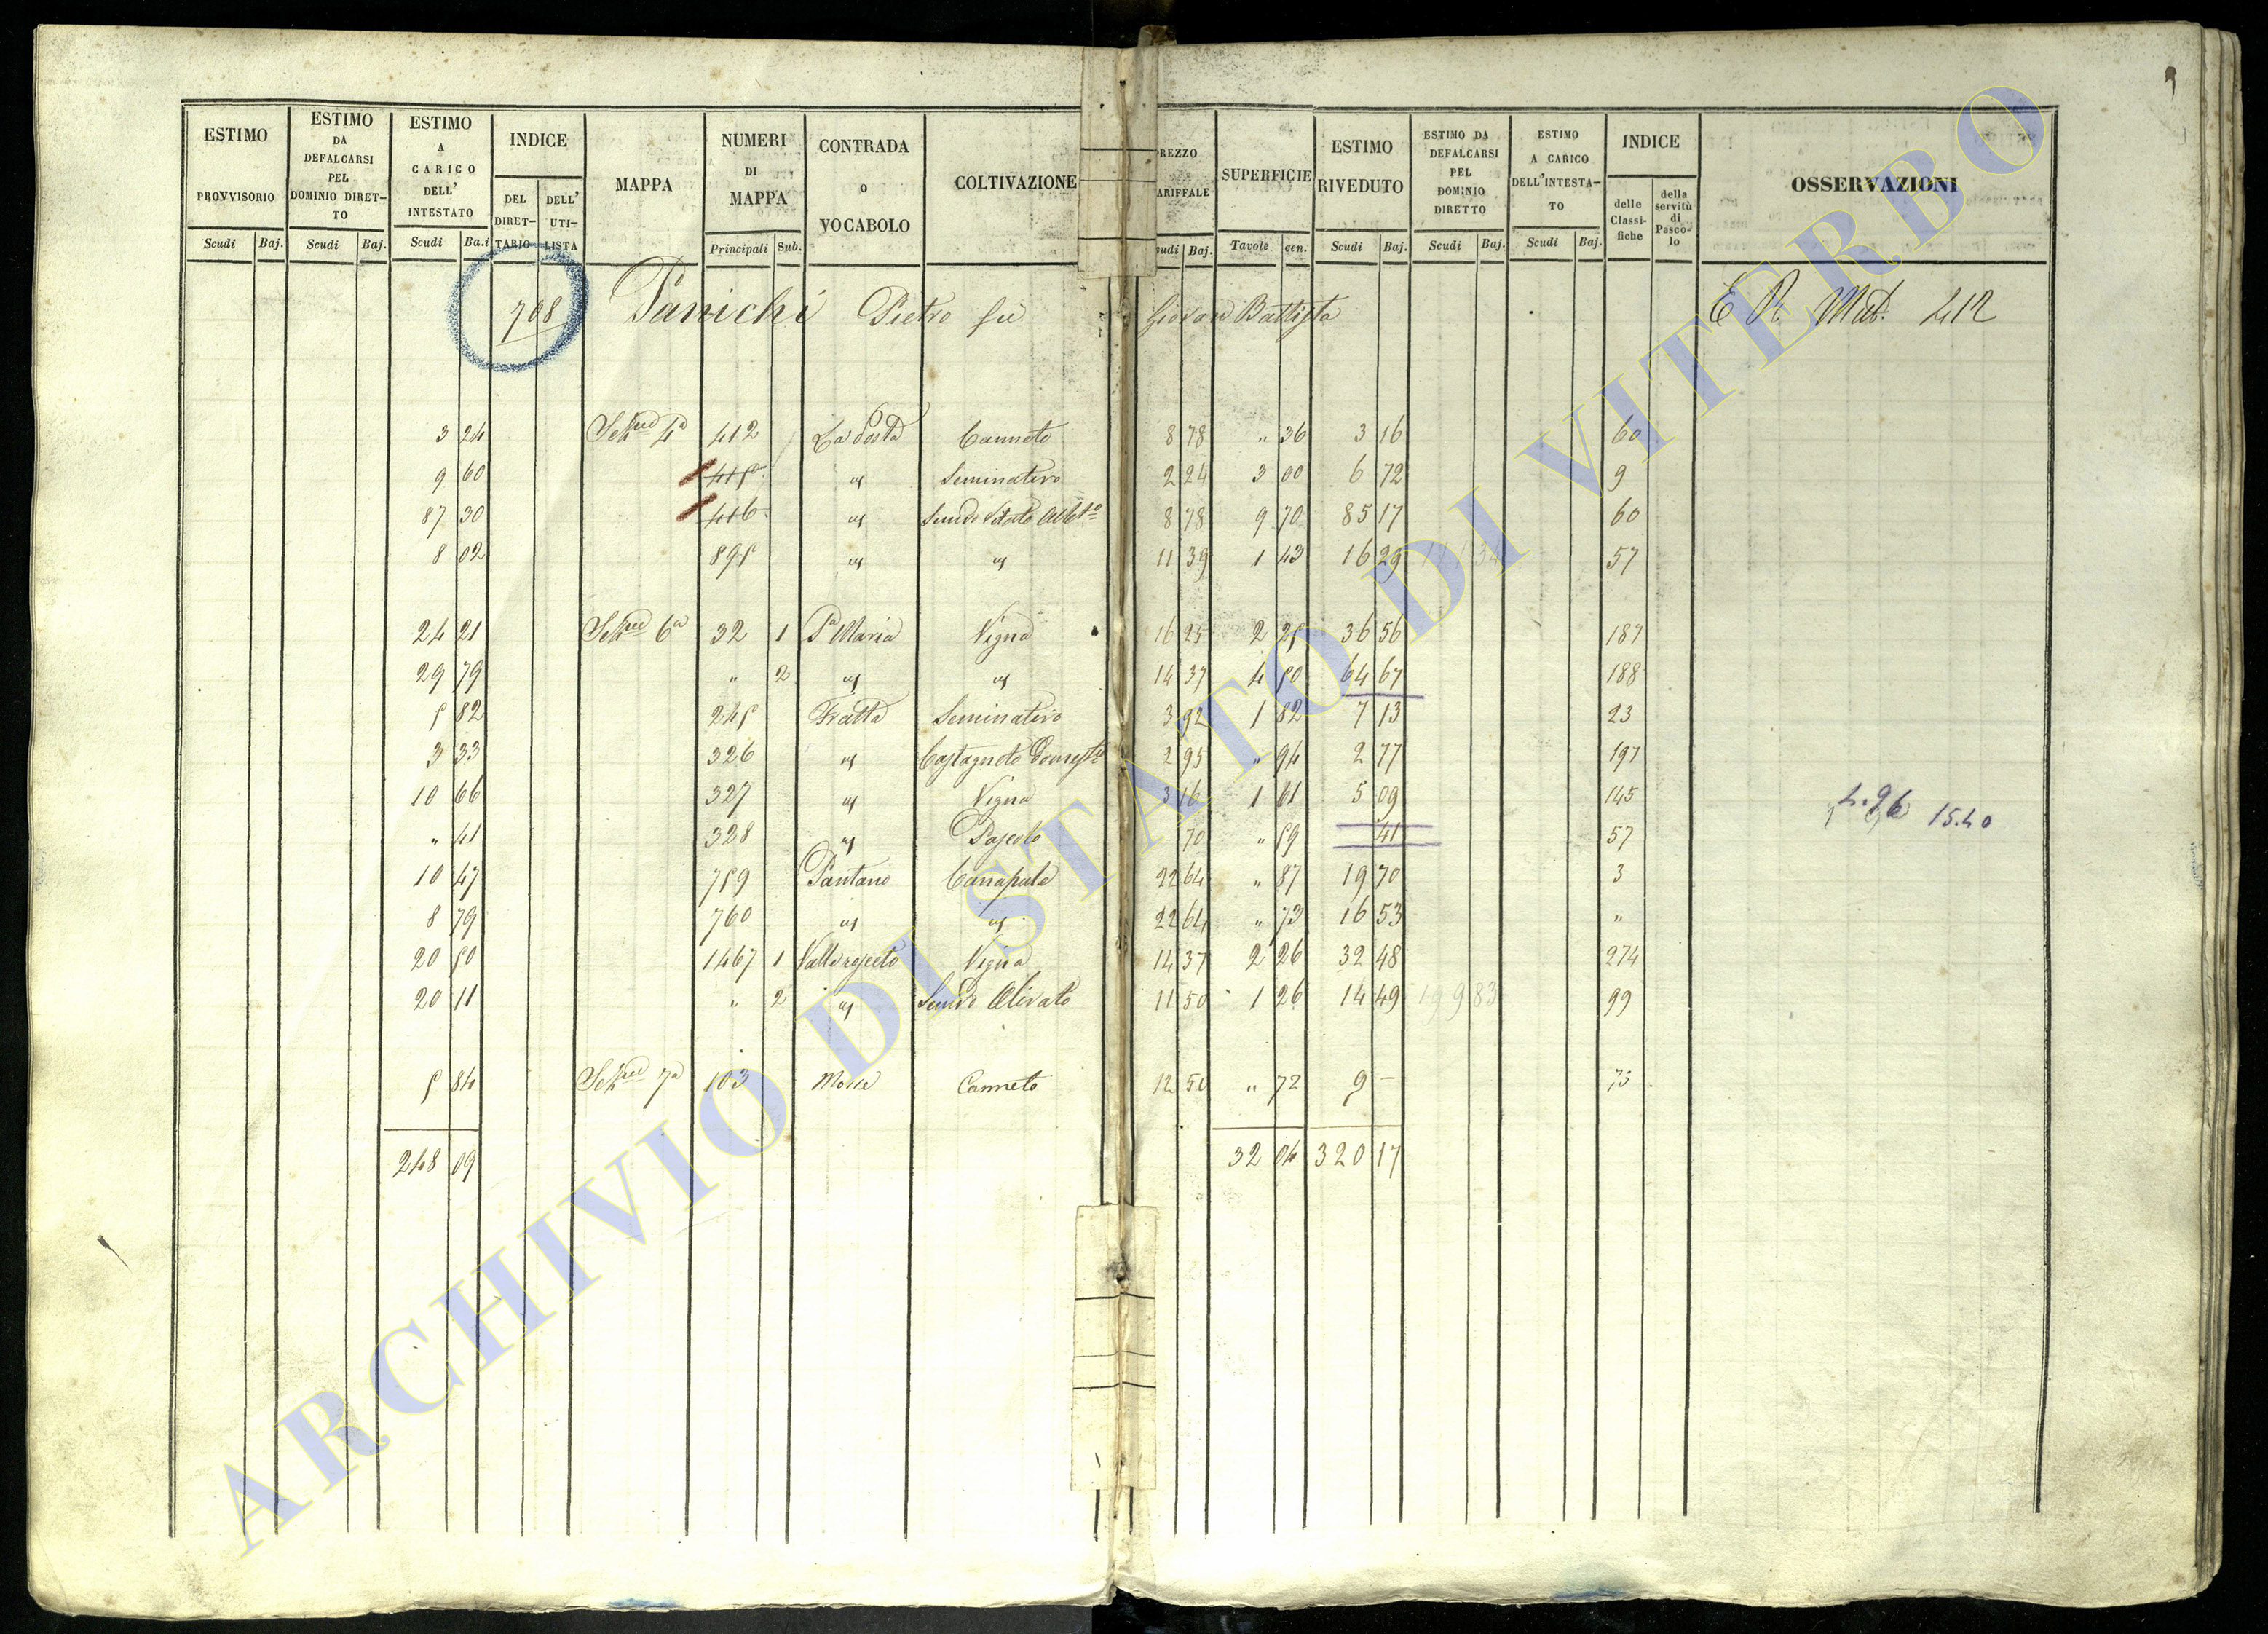 ESTIMO PROVVISORIO Scudi Baj.
ESTIMO DA DEFALCARSI PEL DOMINIO DIRETTO Scudi Baj.
ESTIMO A CARICO DELL' INTESTATO Scudi Ba.i
INDICE DEL DIRET-TARIO DELL' UTI-LISTA
MAPPA
NUMERI DI MAPPA Principali Sub.
CONTRADA O VOCABOLO
COLTIVAZIONE
REZZO ARIFFALE udi Baj.
SUPERFICIE Tavole cen.
ESTIMO RIVEDUTO Scudi Baj.
ESTIMO DA DEFALCARSI PEL DOMINIO DIRETTO Scudi Baj.
ESTIMO A CARICO DELL'INTESTA-TO Scudi Baj.
INDICE delle Classi-fiche della servitù di Pasco-lo
OSSERVAZIONI
708 Panichi Pietro fu Giovan Battista E R. Mat. 412
3 24 4a 412 La Posta Canneto 8 78 " 36 3 16 60
9 60 415 Seminativo 2 24 3 00 6 72 9
87 30 416 8 78 9 70 85 17 60
8 02 895 11 39 1 43 16 29 57
24 21 6a 32 1 Sa Maria Vigna 16 25 2 25 36 56 187
29 79 " 2 14 37 4 50 64 67 188
5 82 245 Fratta Seminativo 3 92 1 82 7 13 23
3 33 326 Castagneto 2 95 " 94 2 77 197
10 66 327 Vigna 3 16 1 61 5 09 145
4.96 15.40
" 41 328 Pascolo 70 " 59 41 57
10 47 759 Pantano Canapule 22 64 " 87 19 70 3
8 79 760 22 64 " 73 16 53 "
20 50 1467 1 Vigna 14 37 2 26 32 48 274
20 11 " 2 Olivato 11 50 1 26 14 49 199 83 99
5 84 7a 103 Canneto 12 50 " 72 9 — 75
248 09 32 04 320 17
ARCHIVIO DI STATO DI VITERBO